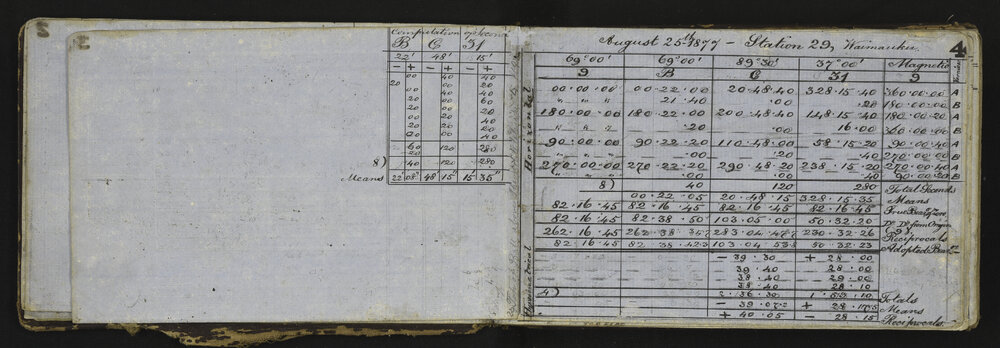 Computation of Seconds
B C 31
22' 48' 15'
- + - + - +
00 40 40
20 00 20
00 40 40
20 00 60
20 20 00
00 00 40
20 20 00
00 00 40
60 120 280
20
8) 40 120 280
Means 22 05" 48' 15" 15' 35"
August 25th 1877 - Station 29, Waimauku.
4
69°00' 69°00' 89°30' 37°00' Magnetic Vernier
9 B C 31 9
Horizontal
00.00.00 00.22.00 20.48.40 328.15.40 360.00.00 A
" " " " 21.40 .00 .20 180.00.00 B
180.00.00 180.22.00 200.48.40 148.15.40 180.00.20 A
" " " .20 .00 16.00 360.00.00 B
90.00.00 90.22.20 110.48.00 58.15.20 90.00.40 A
" " " .00 .20 .40 270.00.00 B
270.00.00 270.22.20 290.48.20 238.15.20 270.00.40 A
" " " .00 .00 .40 90.00.20 B
8) 40 120 280 Total Seconds
00.22.05 20.48.15 328.15.35 Means
82.16.45 82.16.45 82.16.45 82.16.45 True Bearg of Zero
82.16.45 82.38.50 103.05.00 50.32.20 Do Do from Origin
262.16.45 262.38.35 283.04.47 230.32.26 Reciprocals
82.16.45 82.38.42 103.04.53 50.32.23 Adopted Bear
Hypsometrical
- 39.30 + 28.00
39.40 28.00
38.40 29.00
38.40 28.10
4) 2.36.30 1.53.10 Totals
- 39.07 + 28.17 Means
+ 40.05 - 28.15 Reciprocals